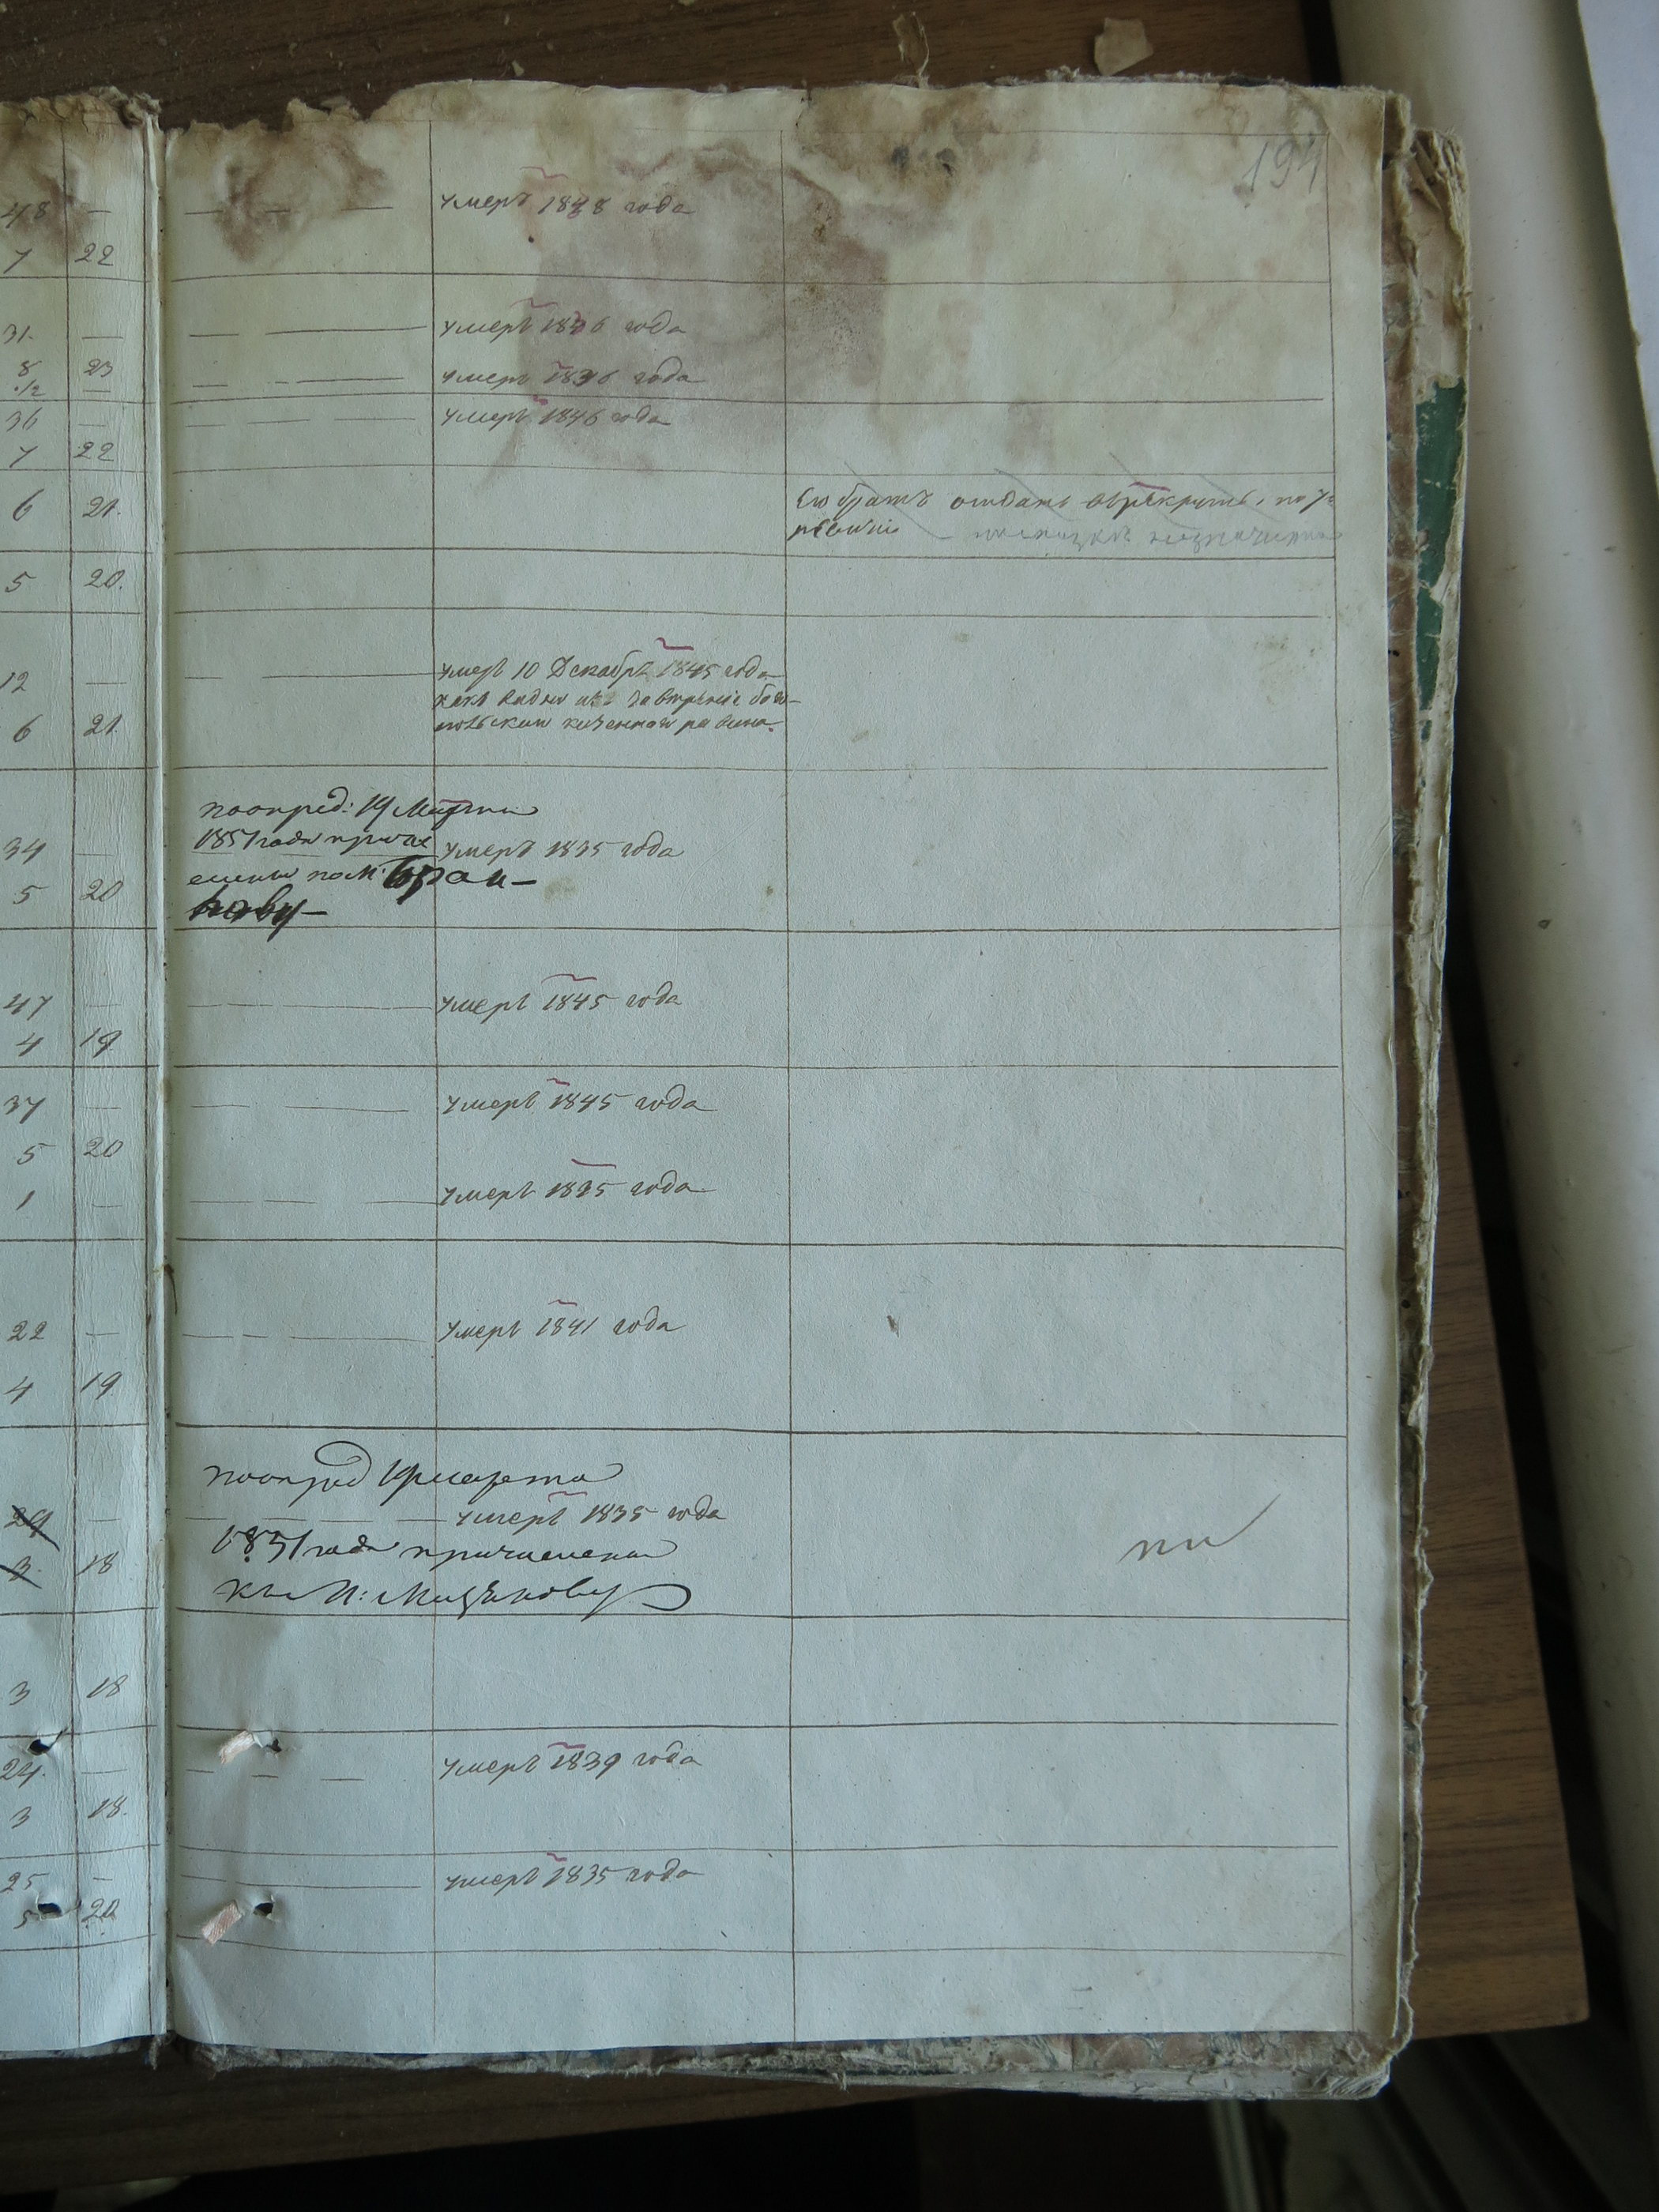 194
48 — умеръ 1848 года
7 22
31. — умеръ 1836 года
8 23
1/2 — умеръ 1836 года
36 — умеръ 1846 года
7 22
6 21. Его братъ отданъ въ рекруты, по 7й
ревизіи
5 20.
12 — умеръ 10 Декабрь 1845 года
какъ видно изъ
казенной равина.
6 21.
поопред: 19 Марта
1851 года причи
34 — умеръ 1835 года
слены по М:
5 20
47 — умеръ 1845 года
4 19
37 — умеръ 1845 года
5 20
1 — умеръ 1835 года
22 — умеръ 1841 года
4 19
поопред 19 марта
29 — умеръ 1835 года
1851 года причислены
3. 18
къ М:
3 18
24. — умеръ 1839 года
3 18.
25 — умеръ 1835 года
5 20